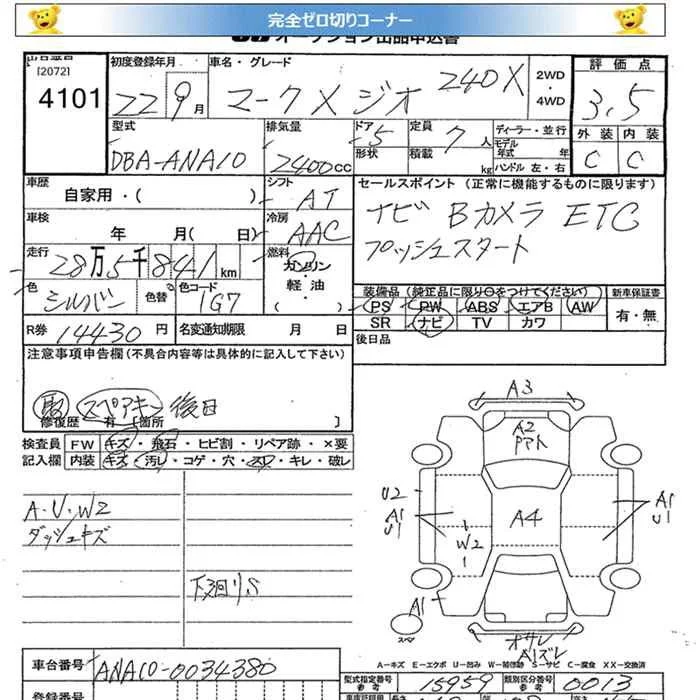 完全ゼロ切りコーナー
オークション出品申込書
出品番号 初度登録年月 車名・グレード 2WD・4WD 評価点
[2072]
4101 22 9月 マークXジオ 240X 3.5
型式 排気量 ドア 定員 ディーラー・並行 外装 内装
DBA-ANA10 2400cc 5 7人 モデル年式 年 C C
形状 積載 kg ハンドル 左・右
車歴 シフト セールスポイント(正常に機能するものに限ります)
自家用・( ) AT
車検 冷房 ナビ Bカメラ ETC
年 月( 日) AAC プッシュスタート
走行 燃料
28万5千841km ガソリン・軽油・( )
色 色替 色コード 装備品(純正品に限り○をつけてください) 新車保証書
シルバー 1G7 PS PW ABS エアB AW 有・無
SR ナビ TV カワ
R券 14430円 名変通知期限 月 日 後日品
注意事項申告欄(不具合内容等は具体的に記入して下さい)
スペアキー 後日
修復歴 有 [箇所 ]
検査員 FW キズ・飛石・ヒビ割・リペア跡・×要
記入欄 内装 キズ・汚レ・コゲ・穴・スレ・キレ・破レ
A・U・W2
ダッシュキズ
下廻りS
A3
A2
U2
A1
U1
A4
W2
A1
U1
A1
スペア
A1ズレ
A-キズ E-エクボ U-凹み W-補修跡 S-サビ C-腐食 XX-交換済
車台番号 ANA10-0034380
型式指定番号 参考 15959 類別区分番号 参考 0013
登録番号